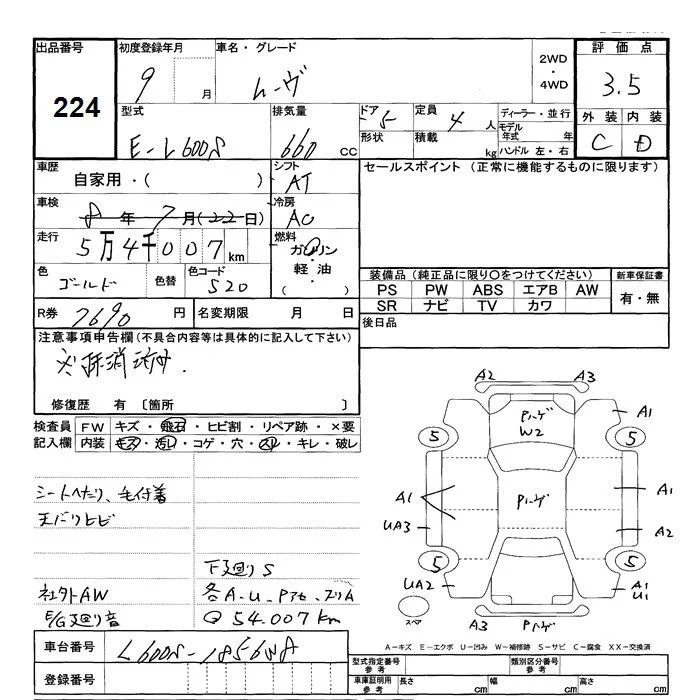 出品番号 初度登録年月 車名・グレード 2WD・4WD 評価点
224 9 月 ムーヴ 3.5
型式 排気量 ドア 5 定員 4 人 ディーラー・並行 外装 内装
E-L600S 660 CC 形状 積載 kg モデル年式 年 ハンドル 左・右 C D
車歴 自家用・( ) シフト AT セールスポイント (正常に機能するものに限ります)
車検 8 年 7 月(22日) 冷房 AC
走行 5万4千007km 燃料 ガソリン・軽油・( )
色 ゴールド 色替 色コード S20
装備品 (純正品に限り〇をつけてください) 新車保証書
PS PW ABS エアB AW 有・無
SR ナビ TV カワ
R券 7690 円 名変期限 月 日 後日品
注意事項申告欄 (不具合内容等は具体的に記入して下さい)
※抹消済み.
修復歴 有 〔箇所 〕
検査員 FW キズ・飛石・ヒビ割・リペア跡・×要
記入欄 内装 キズ・汚レ・コゲ・穴・スレ・キレ・破レ
シートへたり、毛付着
天バリヒビ
下廻りS
社外AW 各A-U-Pアセ-スリA
E/G廻り音 @54.007km
A2 A3
Pハーゲ W2 A1
5 5
A1 Pハゲ A1
UA3 A2
5 5
UA2 A1 U1
スペア A3 Pハーゲ
A-キズ E-エクボ U-凹み W-補修跡 S-サビ C-腐食 XX-交換済
車台番号 L600S-
登録番号
型式指定番号 参考 類別区分番号 参考
車庫証明用 参考 長さ cm 幅 cm 高さ cm